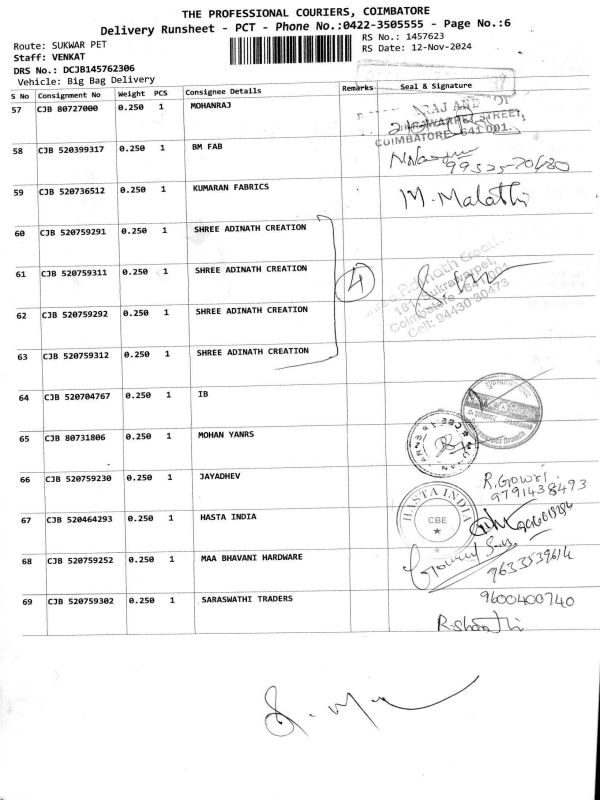 THE PROFESSIONAL COURIERS, COIMBATORE
Delivery Runsheet - PCT - Phone No.:0422-3505555 - Page No.:6
Route: SUKWAR PET
RS No.: 1457623
Staff: VENKAT
RS Date: 12-Nov-2024
DRS No.: DCJB145762306
Vehicle: Big Bag Delivery
S No Consignment No Weight PCS Consignee Details Remarks Seal & Signature
57 CJB 80727000 0.250 1 MOHANRAJ
STREET,
COIMBATORE - 641 001.
58 CJB 520399317 0.250 1 BM FAB
59 CJB 520736512 0.250 1 KUMARAN FABRICS M. Malathi
60 CJB 520759291 0.250 1 SHREE ADINATH CREATION
61 CJB 520759311 0.250 1 SHREE ADINATH CREATION 4
Sukrawarpet,
Coimbatore - 641 001
Cell: 94430 30473
62 CJB 520759292 0.250 1 SHREE ADINATH CREATION
63 CJB 520759312 0.250 1 SHREE ADINATH CREATION
64 CJB 520704767 0.250 1 IB
65 CJB 80731806 0.250 1 MOHAN YANRS
66 CJB 520759230 0.250 1 JAYADHEV R. Gowri
9791438493
67 CJB 520464293 0.250 1 HASTA INDIA HASTA INDIA
CBE
68 CJB 520759252 0.250 1 MAA BHAVANI HARDWARE 9633539614
69 CJB 520759302 0.250 1 SARASWATHI TRADERS 9600400740
R. Shanthi